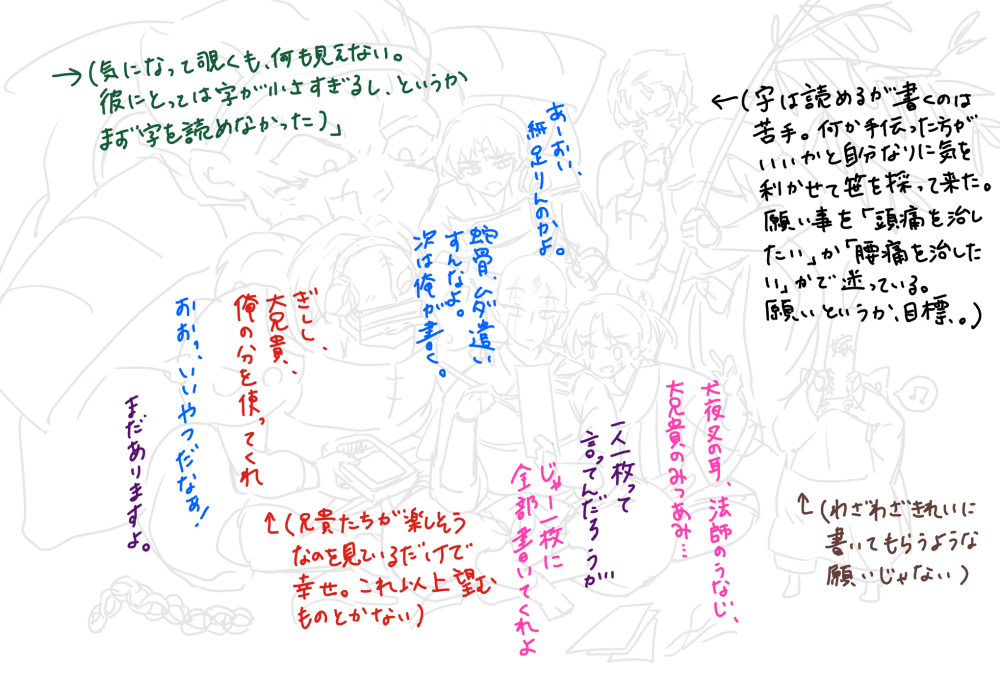 →(気になって覗くも、何も見えない。
彼にとっては字が小さすぎるし、というか
まず字を読めなかった)」
←(字は読めるが書くのは
苦手。何か手伝った方が
いいかと自分なりに気を
利かせて笹を採って来た。
願い事を「頭痛を治し
たい」か「腰痛を治した
い」かで迷っている。
願いというか、目標。)
あーおい、
紙足りんのかよ。
蛇骨、ムダ遣い
すんなよ。
次は俺が書く。
ぎしし、
大兄貴、
俺の分を使ってくれ
おおっ、いいやつだなぁ!
まだありますよ。
嫁
♪
犬夜叉の耳、法師のうなじ、
大兄貴のみつあみ…
一人一枚って
言ってんだろうが
じゃー一枚に
全部書いてくれよ
↑(兄貴たちが楽しそう
なのを見ているだけで
幸せ。これ以上望む
ものとかない)
↑(わざわざきれいに
書いてもらうような
願いじゃない)